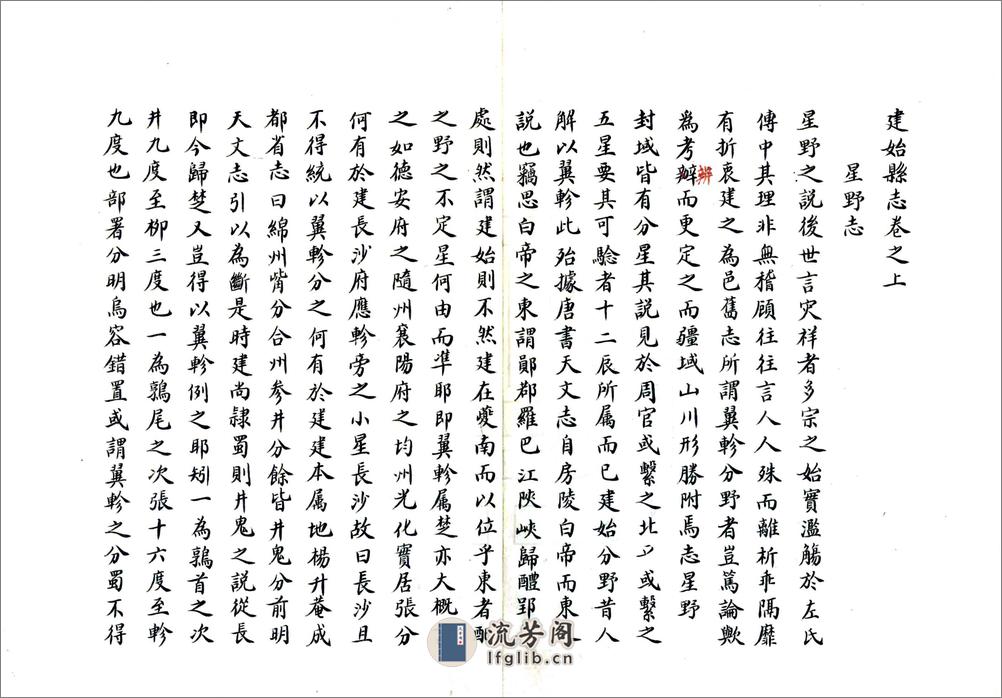 建始縣志卷之上
星野志
星野之説後世言灾祥者多宗之始實濫觴於左氏
傳中其理非無稽顧往往言人人殊而離析乖隔靡
有折衷建之為邑舊志所謂翼軫分野者豈篤論歟
為考辧而更定之而疆域山川形勝附焉志星野
辧
封域皆有分星其説見於周官或繫之北斗或繫之
五星要其可驗者十二辰所属而已建始分野昔人
解以翼軫此殆據唐書天文志自房陵白帝而東一
説也竊思白帝之東謂鄖郡羅巴江陝峽歸醴郢
處則然謂建始則不然建在夔南而以位乎東者酌
之野之不定星何由而凖耶即翼軫属楚亦大概
之如德安府之隨州襄陽府之均州光化實居張分
何有於建長沙府應軫旁之小星長沙故曰長沙且
不得統以翼軫分之何有於建建本属地楊升菴成
都省志曰綿州觜分合州参井分餘皆井鬼分前明
天文志引以為斷是時建尚隷蜀則井鬼之説從長
即今歸楚又豈得以翼軫例之耶矧一為鶉首之次
井九度至柳三度也一為鶉尾之次張十六度至軫
九度也部署分明烏容錯置或謂翼軫之分蜀不得
流芳阁
lfglib.cn